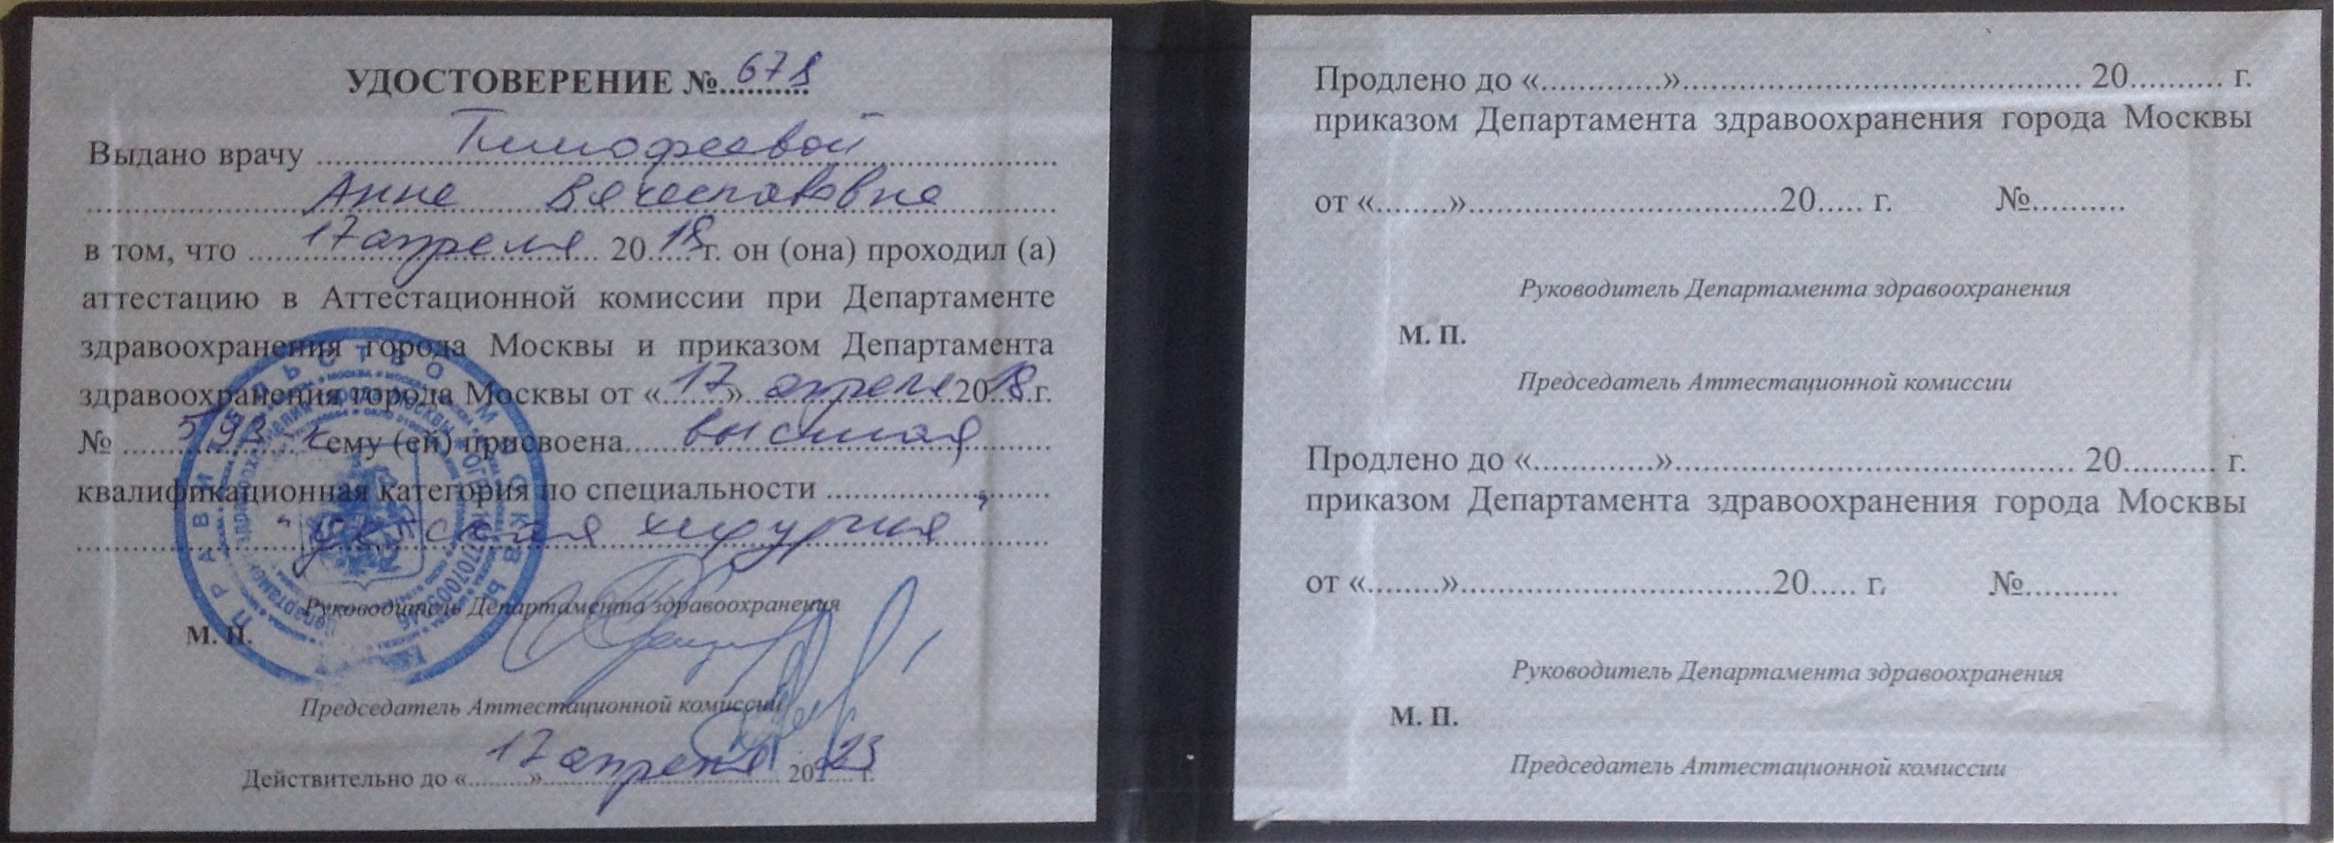 УДОСТОВЕРЕНИЕ №..........678
Выдано врачу Тимофеевой
Анне Вячеславовне
в том, что 17 апреля 2018г. он (она) проходил (а)
аттестацию в Аттестационной комиссии при Департаменте
здравоохранения города Москвы и приказом Департамента
здравоохранения города Москвы от «17» апреля 2018.г.
№ 593 к ему (ей) присвоена высшая
квалификационная категория по специальности
"детская хирургия"
Руководитель Департамента здравоохранения
М. П.
Председатель Аттестационной комиссии
Действительно до «17» апреля 2023 г.
ПРАВИТЕЛЬСТВО МОСКВЫ
Продлено до «.............»........................................... 20.......... г.
приказом Департамента здравоохранения города Москвы
от «........».................................20..... г. №..........
Руководитель Департамента здравоохранения
М. П.
Председатель Аттестационной комиссии
Продлено до «.............»........................................... 20.......... г.
приказом Департамента здравоохранения города Москвы
от «........».................................20..... г. №..........
Руководитель Департамента здравоохранения
М. П.
Председатель Аттестационной комиссии